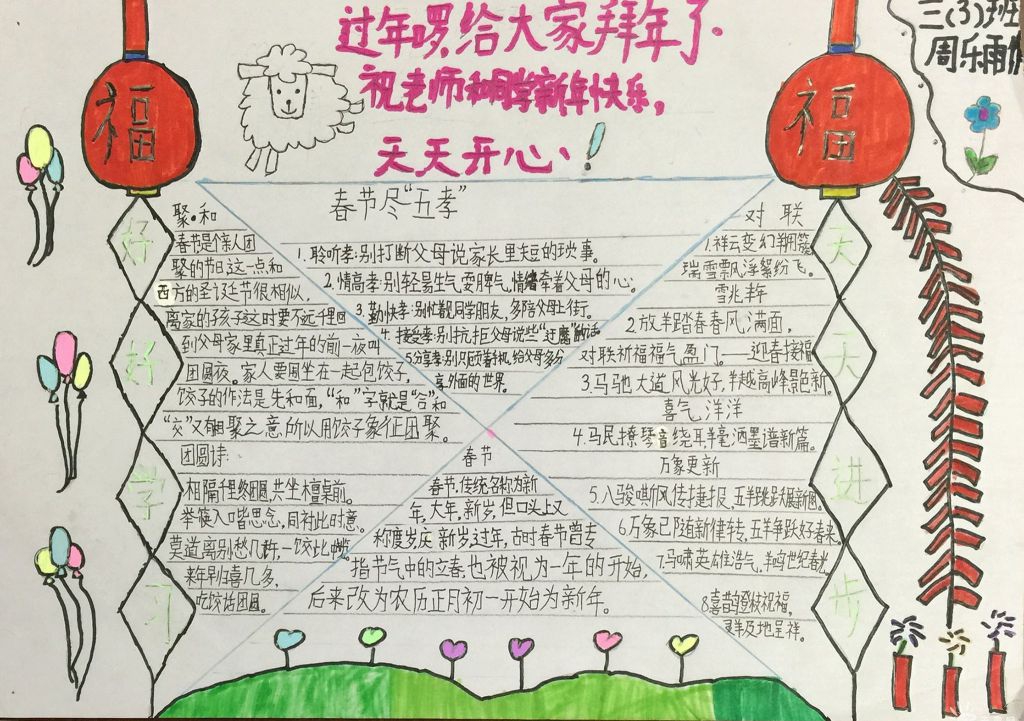 过年啰,给大家拜年了.
祝老师和同学新年快乐,
天天开心、!
三(3)班
周乐雨
福
福
好
好
学
习
天
天
进
步
聚·和
春节是个亲人团
聚的节日这一点和
西方的圣诞节很相似,
离家的孩子这时要不远千里回
到父母家里真正过年的前一夜叫
团圆夜。家人要围坐在一起包饺子,
饺子的作法是先和面,“和”字就是“合”和
“交”又有相聚之意,所以用饺子象征团聚。
团圆诗:
相隔千里终团圆,共坐木檀桌前。
举筷入口皆思念,
莫道离别愁几许,一饺
来年
吃饺话团圆。
春节尽“五孝”
1.聆听孝:别打断父母说家长里短的琐事。
2.情高孝:别轻易生气耍脾气,情绪牵着父母的心。
3.勤快孝:别忙着见同学朋友,多陪父母上街。
4.接受孝:别抗拒父母说些“迂腐”的话
5分享孝:别只顾着手机,给父母多分
享外面的世界。
春节
春节,传统名称为新
年,大年,新岁,但口头上又
称度岁,庆新岁,过年,古时春节曾专
指节气中的立春,也被视为一年的开始,
后来改为农历正月初一开始为新年。
对联
1.祥云变幻
瑞雪飘浮絮纷飞。
雪兆丰年
2.放羊踏春春风满面,
对联祈福福气盈门。——迎春接福
3.马驰大道风光好,羊越高峰景色新
喜气洋洋
4.马民撩琴音绕耳羊毫洒墨谱新篇。
万象更新
5.八骏嘶风传捷报,五羊跳跃展新图
6万象已随新律转,五羊争跃好春来
7.马啸英雄浩气,羊鸣世纪春光
8.喜鹊登枝祝福,
灵羊及地呈祥。